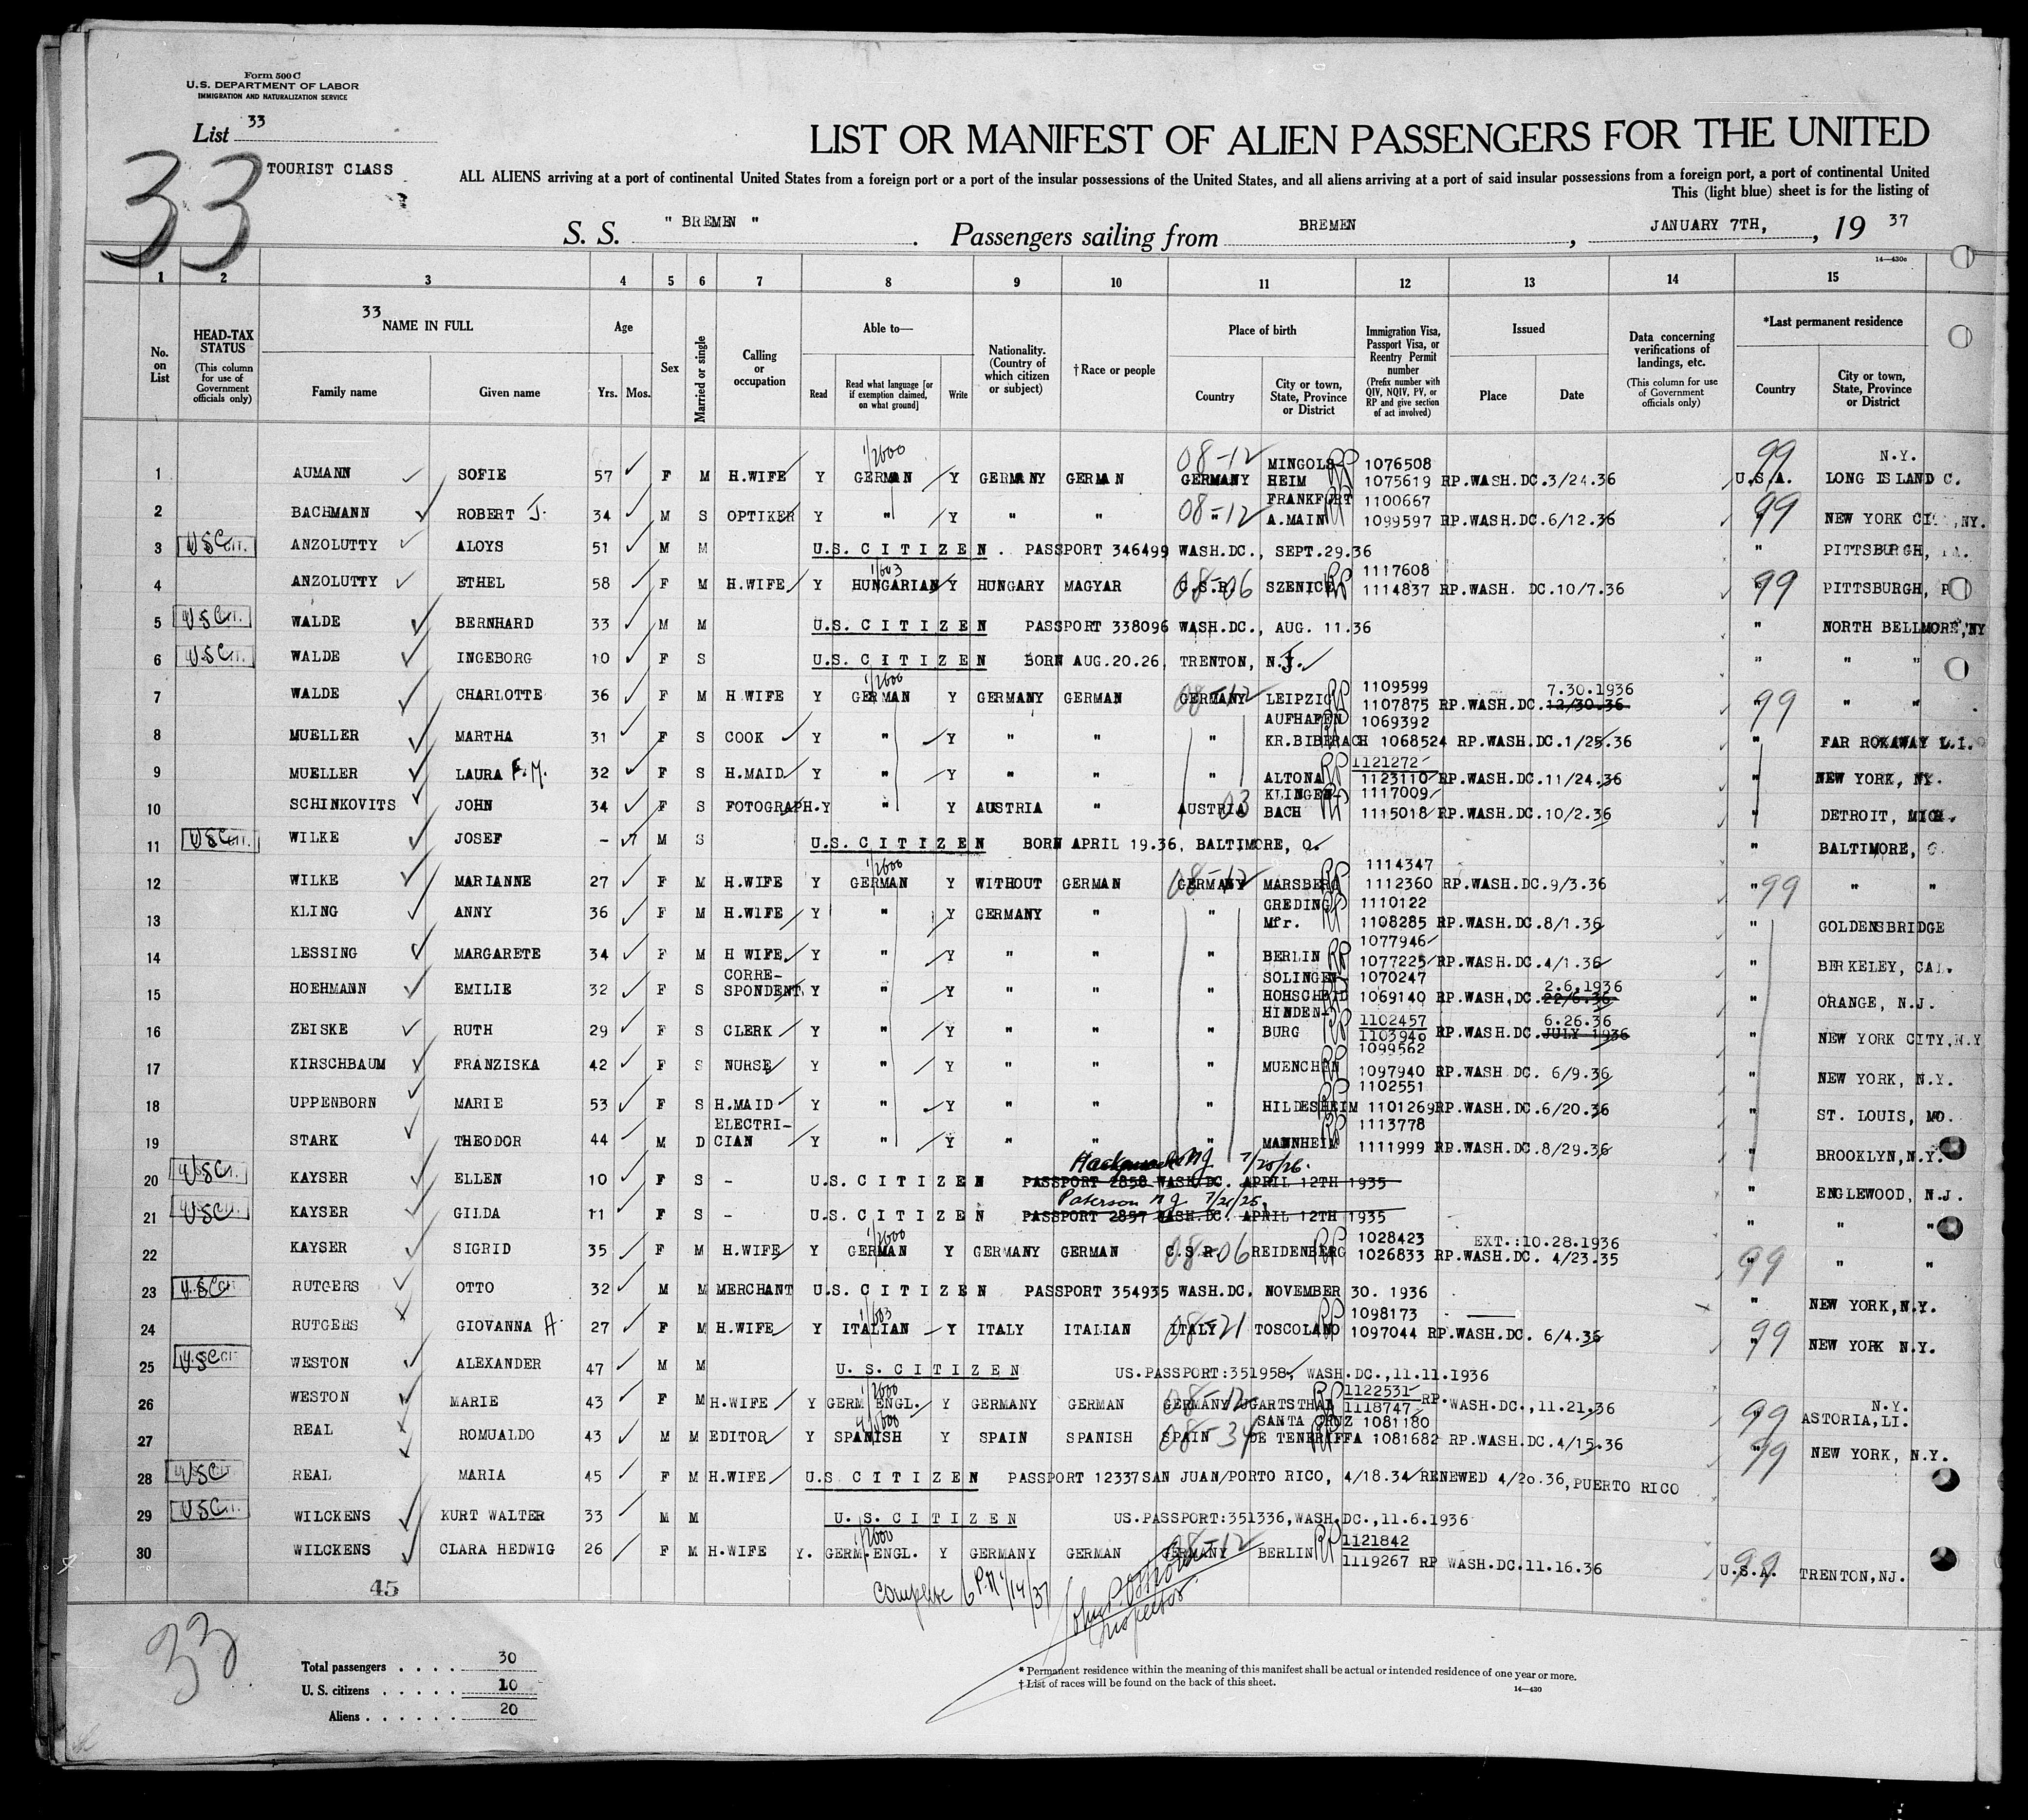 Form 500 C
U.S. DEPARTMENT OF LABOR
IMMIGRATION AND NATURALIZATION SERVICE
List 33
33
TOURIST CLASS
LIST OR MANIFEST OF ALIEN PASSENGERS FOR THE UNITED
ALL ALIENS arriving at a port of continental United States from a foreign port or a port of the insular possessions of the United States, and all aliens arriving at a port of said insular possessions from a foreign port, a port of continental United
This (light blue) sheet is for the listing of
S. S. " BREMEN " . Passengers sailing from BREMEN , JANUARY 7TH, , 19 37
14—430c
1 2 3 4 5 6 7 8 9 10 11 12 13 14 15
No. on List
HEAD-TAX STATUS (This column for use of Government officials only)
33 NAME IN FULL
Family name Given name
Age Yrs. Mos.
Sex
Married or single
Calling or occupation
Able to— Read Read what language [or if exemption claimed, on what ground] Write
Nationality. (Country of which citizen or subject)
†Race or people
Place of birth Country City or town, State, Province or District
Immigration Visa, Passport Visa, or Reentry Permit number (Prefix number with QIV, NQIV, PV, or RP and give section of act involved)
Issued Place Date
Data concerning verifications of landings, etc. (This column for use of Government officials only)
*Last permanent residence Country City or town, State, Province or District
1/2000 08-12 MINGOLS- RP 1076508 99 N.Y.
1 AUMANN SOFIE 57 F M H.WIFE Y GERMAN Y GERMANY GERMAN GERMANY HEIM 1075619 RP.WASH.DC.3/24.36 U.S.A. LONG ISLAND C.
FRANKFURT 1100667
2 BACHMANN ROBERT J. 34 M S OPTIKER Y " Y " " 08-12 " A.MAIN RP 1099597 RP.WASH.DC.6/12.36 99 " NEW YORK CI ,NY.
3 USC ANZOLUTTY ALOYS 51 M M U.S. C I T I Z E N . PASSPORT 346499 WASH.DC., SEPT.29.36 " PITTSBURGH,
1/603 1117608
4 ANZOLUTTY ETHEL 58 F M H.WIFE Y HUNGARIAN Y HUNGARY MAGYAR C.S.R. 08-06 SZENICE RP 1114837 RP.WASH. DC.10/7.36 " 99 PITTSBURGH, P
5 USC WALDE BERNHARD 33 M M U.S. C I T I Z E N PASSPORT 338096 WASH.DC., AUG. 11.36 " NORTH BELLMORE,NY
6 USC WALDE INGEBORG 10 F S U.S. C I T I Z E N BORN AUG.20.26, TRENTON, N.J. " " "
1/2000 1109599 7.30.1936
7 WALDE CHARLOTTE 36 F M H.WIFE Y GERMAN Y GERMANY GERMAN GERMANY 08-12 LEIPZIG RP 1107875 RP.WASH.DC.12/30.36 " 99 " "
AUFHAFEN 1069392
8 MUELLER MARTHA 31 F S COOK Y " Y " " " KR.BIBERACH 1068524 RP.WASH.DC.1/25.36 " FAR ROKAWAY L.I.
1121272
9 MUELLER LAURA F.M. 32 F S H.MAID Y " Y " " " ALTONA RP 1123110 RP.WASH.DC.11/24.36 " NEW YORK, NY.
KLINGEN- 1117009
10 SCHINKOVITS JOHN 34 F S FOTOGRAPH.Y " Y AUSTRIA " AUSTRIA 03 BACH RP 1115018 RP.WASH.DC.10/2.36 " DETROIT, MICH.
11 USC WILKE JOSEF - 7 M S U.S. C I T I Z E N BORN APRIL 19.36, BALTIMORE, O. " BALTIMORE, O.
1/2000 1114347
12 WILKE MARIANNE 27 F M H.WIFE Y GERMAN Y WITHOUT GERMAN GERMANY 08-12 MARSBERG RP 1112360 RP.WASH.DC.9/3.36 " 99 " "
GREDING 1110122
13 KLING ANNY 36 F M H.WIFE Y " Y GERMANY " " Mfr. RP 1108285 RP.WASH.DC.8/1.36 " GOLDENSBRIDGE
1077946
14 LESSING MARGARETE 34 F M H WIFE Y " Y " " " BERLIN RP 1077225 RP.WASH.DC.4/1.36 " BERKELEY, CAL.
CORRE- SOLINGEN- 1070247 2.6.1936
15 HOEHMANN EMILIE 32 F S SPONDENT Y " Y " " " HOHSCHEID 1069140 RP.WASH.DC.22/6.36 " ORANGE, N.J.
HINDEN- 1102457 6.26.36
16 ZEISKE RUTH 29 F S CLERK Y " Y " " " BURG RP 1103946 RP.WASH.DC.JULY 1936 " NEW YORK CITY,N.Y
1099562
17 KIRSCHBAUM FRANZISKA 42 F S NURSE Y " Y " " " MUENCHEN RP 1097940 RP.WASH DC. 6/9.36 " NEW YORK, N.Y.
1102551
18 UPPENBORN MARIE 53 F S H.MAID Y " Y " " " HILDESHEIM 1101269 RP.WASH.DC.6/20.36 " ST. LOUIS, MO.
ELECTRI- 1113778
19 STARK THEODOR 44 M D CIAN Y " Y " " " MANNHEIM RP 1111999 RP.WASH.DC.8/29.36 " BROOKLYN,N.Y.
Hackensack NJ 7/20/26.
20 USC KAYSER ELLEN 10 F S - U.S. C I T I Z E N PASSPORT 2858 WASH.DC. APRIL 12TH 1935 " ENGLEWOOD, N.J.
Paterson NJ 7/20/25.
21 USC KAYSER GILDA 11 F S - U.S. C I T I Z E N PASSPORT 2857 WASH.DC. APRIL 12TH 1935 " " "
1/2000 1028423 EXT.:10.28.1936
22 KAYSER SIGRID 35 F M H.WIFE Y GERMAN Y GERMANY GERMAN C.S.R. 08-06 REIDENBERG RP 1026833 RP.WASH.DC. 4/23.35 " 99 " "
23 USC RUTGERS OTTO 32 M M MERCHANT U.S. C I T I Z E N PASSPORT 354935 WASH.DC. NOVEMBER 30. 1936 " NEW YORK,N.Y.
1/603 1098173
24 RUTGERS GIOVANNA A. 27 F M H.WIFE Y ITALIAN Y ITALY ITALIAN ITALY 08-21 TOSCOLANO RP 1097044 RP.WASH.DC. 6/4.36 " 99 NEW YORK N.Y.
25 USC WESTON ALEXANDER 47 M M U. S. C I T I Z E N US.PASSPORT:351958, WASH.DC.,11.11.1936
1/2000 1122531 N.Y.
26 WESTON MARIE 43 F M H.WIFE Y GERM ENGL. Y GERMANY GERMAN GERMANY 08-12 UGARTSTHAL RP 1118747 RP. WASH.DC.,11.21.36 " 99 ASTORIA,LI.
SANTA CRUZ 1081180
27 REAL ROMUALDO 43 M M EDITOR Y SPANISH Y SPAIN SPANISH SPAIN 08-34 DE TENERIFFA 1081682 RP.WASH.DC.4/15.36 " 99 NEW YORK, N.Y.
28 USC REAL MARIA 45 F M H.WIFE U.S. C I T I Z E N PASSPORT 12337 SAN JUAN/PORTO RICO, 4/18.34 RENEWED 4/20.36, PUERTO RICO
29 USC WILCKENS KURT WALTER 33 M M U. S. C I T I Z E N US.PASSPORT:351336,WASH.DC.,11.6.1936
1/2000 1121842
30 WILCKENS CLARA HEDWIG 26 F M H.WIFE Y. GERM.ENGL. Y GERMANY GERMAN GERMANY 08-12 BERLIN RP 1119267 RP WASH.DC.11.16.36 U.S.A. 99 TRENTON,NJ.
45
Complete 6 P.M. 1/14/37
Inspector
33
Total passengers . . . . 30
U. S. citizens . . . . . 10
Aliens . . . . . . 20
* Permanent residence within the meaning of this manifest shall be actual or intended residence of one year or more.
† List of races will be found on the back of this sheet.
14—430